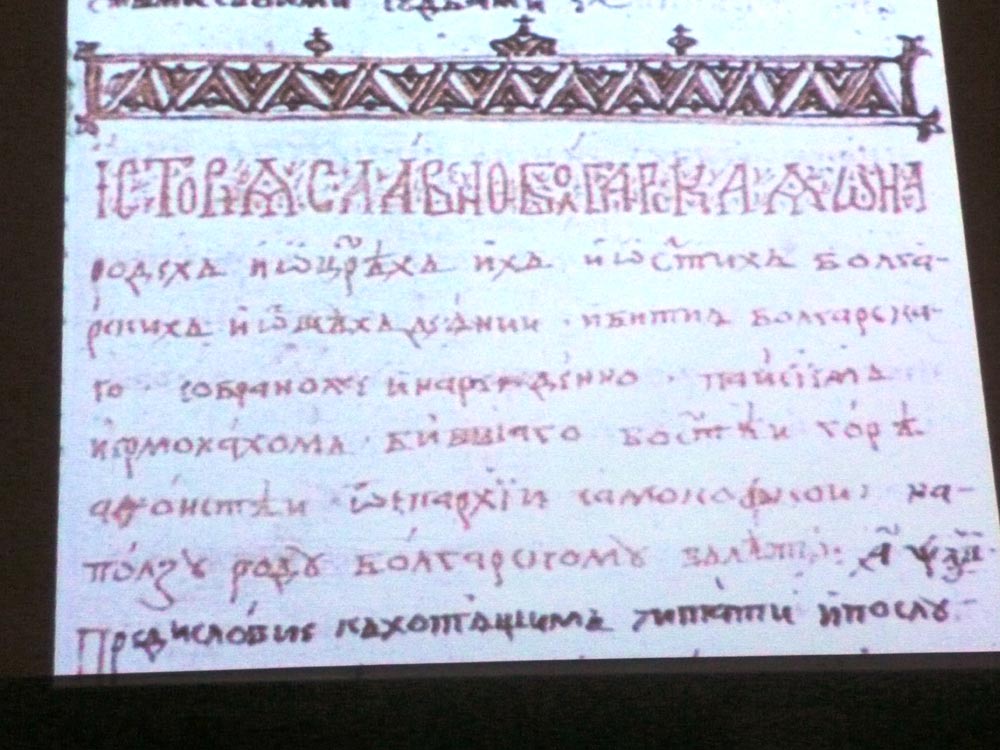 ІСТОРІѦ СЛАВѢНО БОЛГАРСКАѦ Ѡ НА
родехъ и ѡ цр҃ѣхъ ихъ и ѡ ст҃ихъ болга-
рскихъ и ѡ деѧнии и битиѧ болгарска-
го собраноже и нарежденно паисїемъ
иермонахомъ бившаго во ст҃ѣи горѣ
аѳонстѣи ѡ епархїи самоковскои на-
ползꙋ родꙋ болгарскомꙋ
Предисловие къ хотѧщимъ читати и послꙋ-